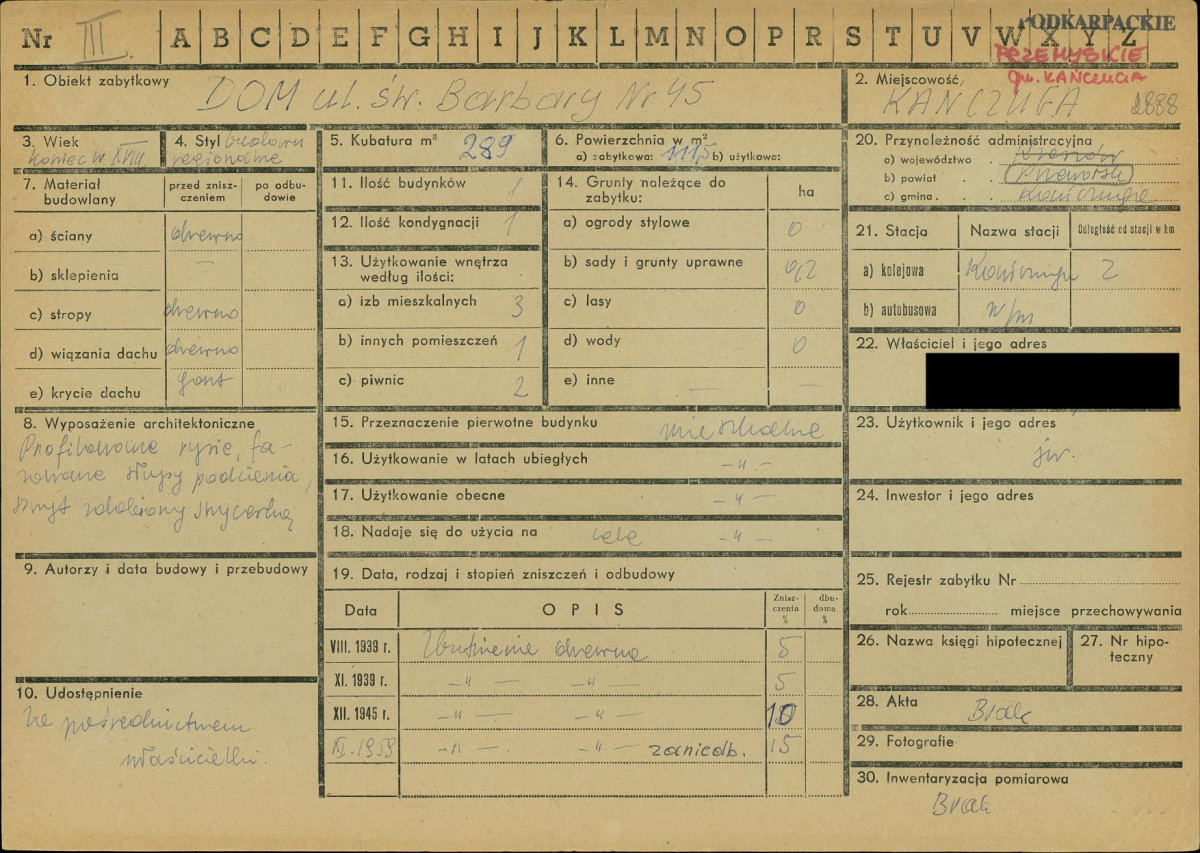 Nr III. A B C D E F G H I J K L M N O P R S T U V W X Y Z
PODKARPACKIE
PRZEMYSKIE
gm. KAŃCZUGA
1. Obiekt zabytkowy
DOM ul. św. Barbary Nr 45
2. Miejscowość
KAŃCZUGA 2888
3. Wiek
koniec w XVIII
4. Styl
regionalne
5. Kubatura m³ 289
6. Powierzchnia w m²
a) zabytkowa: 111,5 b) użytkowa:
7. Materiał budowlany
przed zniszczeniem
po odbudowie
a) ściany drewno
b) sklepienia —
c) stropy drewno
d) wiązania dachu drewno
e) krycie dachu gont
8. Wyposażenie architektoniczne
Profilowane rysie, fa-
zowane słupy podcienia,
szczyt zdobiony snycerką
9. Autorzy i data budowy i przebudowy
10. Udostępnienie
Za pośrednictwem
właścicielki.
11. Ilość budynków 1
12. Ilość kondygnacji 1
13. Użytkowanie wnętrza
według ilości:
a) izb mieszkalnych 3
b) innych pomieszczeń 1
c) piwnic 2
14. Grunty należące do
zabytku:
ha
a) ogrody stylowe 0
b) sady i grunty uprawne 0,2
c) lasy 0
d) wody 0
e) inne — —
15. Przeznaczenie pierwotne budynku mieszkalne
16. Użytkowanie w latach ubiegłych -"-
17. Użytkowanie obecne -"-
18. Nadaje się do użycia na cele -"-
19. Data, rodzaj i stopień zniszczeń i odbudowy
Data
OPIS
Znisz-
czenia
%
dbu-
dowa
%
VIII. 1939 r. Zbutwienie drewna 5
XI. 1939 r. -"- -"- 5
XII. 1945 r. -"- -"- 10
XI. 1959 -"- -"- zaniedb. 15
20. Przynależność administracyjna
a) województwo . Rzeszów
b) powiat . . Przeworsk
c) gmina . . . Kańczuga
21. Stacja
Nazwa stacji
Odległość od stacji w km
a) kolejowa Kańczuga 2
b) autobusowa w/m
22. Właściciel i jego adres
23. Użytkownik i jego adres
jw.
24. Inwestor i jego adres
25. Rejestr zabytku Nr
rok miejsce przechowywania
26. Nazwa księgi hipotecznej
27. Nr hipo-
teczny
28. Akta Brak
29. Fotografie
30. Inwentaryzacja pomiarowa
Brak